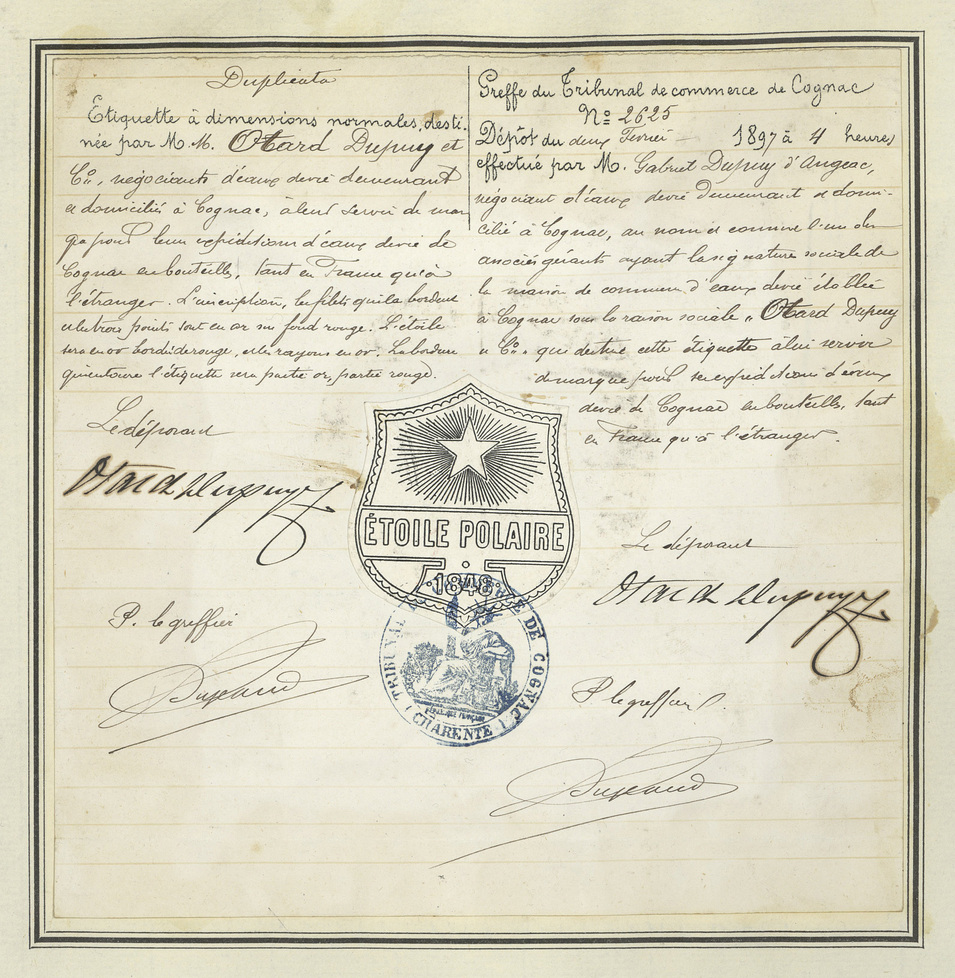 Duplicata
Etiquette à dimensions normales, desti-
née par M.M. Otard Dupuy et
Cie, négociants d'eaux de vie demeurant
et domiciliés à Cognac, à leur servir de mar
que pour leurs expéditions d'eaux de vie de
Cognac en bouteilles, tant en France qu'à
l'étranger. L'inscription, les filets qui la bordent
et les trois points sont en or sur fond rouge. L'étoile
sera en or bordé de rouge, et les rayons en or. La bordure
qui entoure l'étiquette sera partie or, partie rouge.
Le déposant
Otard Dupuy
P. le greffier
Greffe du Tribunal de commerce de Cognac
No 2625
Dépôt du deux Fevrier 1897 à 4 heures
effectué par M. Gabriel Dupuy d'Angeac,
négociant d'eaux de vie demeurant et domi-
cilié à Cognac, au nom et comme l'un des
associés gérants ayant la signature sociale de
la maison de commerce d'eaux de vie établie
à Cognac sous la raison sociale „ Otard Dupuy
„ Cie „ qui destine cette étiquette à lui servir
de marque pour ses expéditions d'eaux
de vie de Cognac en bouteilles, tant
en France qu'à l'étranger.
Le déposant
Otard Dupuy
P. le greffier
ÉTOILE POLAIRE
1848
TRIBUNAL DE COMMERCE DE COGNAC
(CHARENTE)